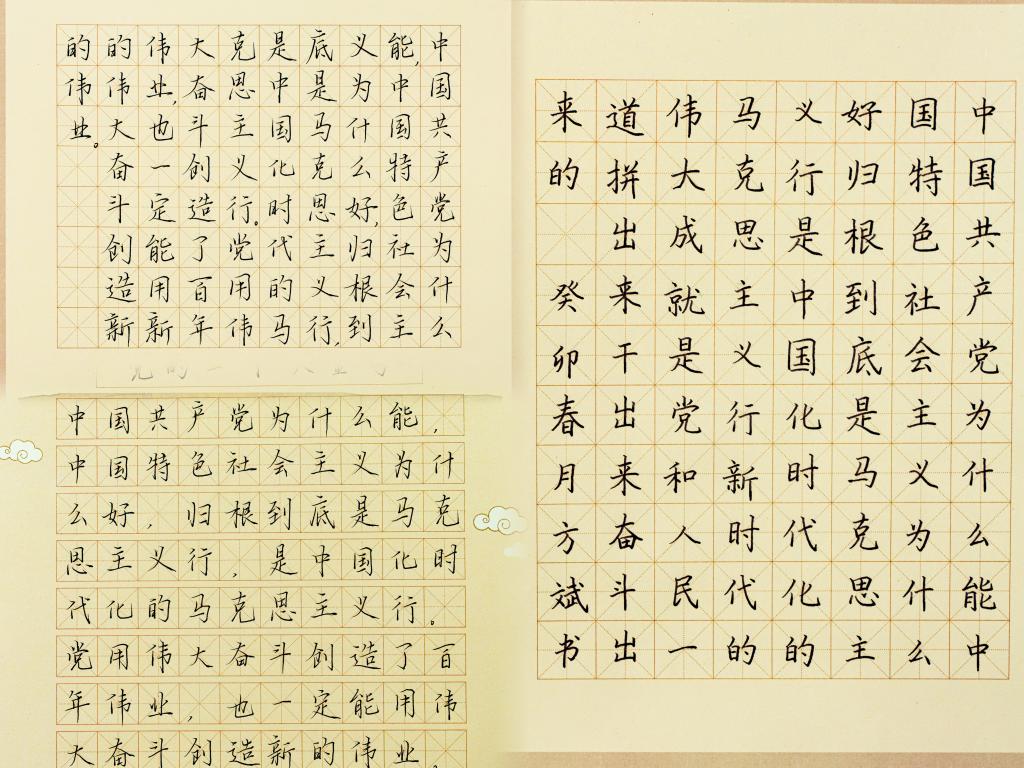 中国共产党为什么
能,中国特色社会主
义为什么好,归根到
底是马克思主义行,
是中国化时代的马
克思主义行。党用伟
大奋斗创造了百年
伟业,也一定能用新
的伟大奋斗创造新
的伟业。
中国共产党为什么能,
中国特色社会主义为什
么好,归根到底是马克
思主义行,是中国化时
代化的马克思主义行。
党用伟大奋斗创造了百
年伟业,也一定能用伟
大奋斗创造新的伟业。
中国共产党为什么能中
国特色社会主义为什么
好归根到底是马克思主
义行是中国化时代化的
马克思主义行新时代的
伟大成就是党和人民一
道拼出来干出来奋斗出
来的 癸卯春月方斌书